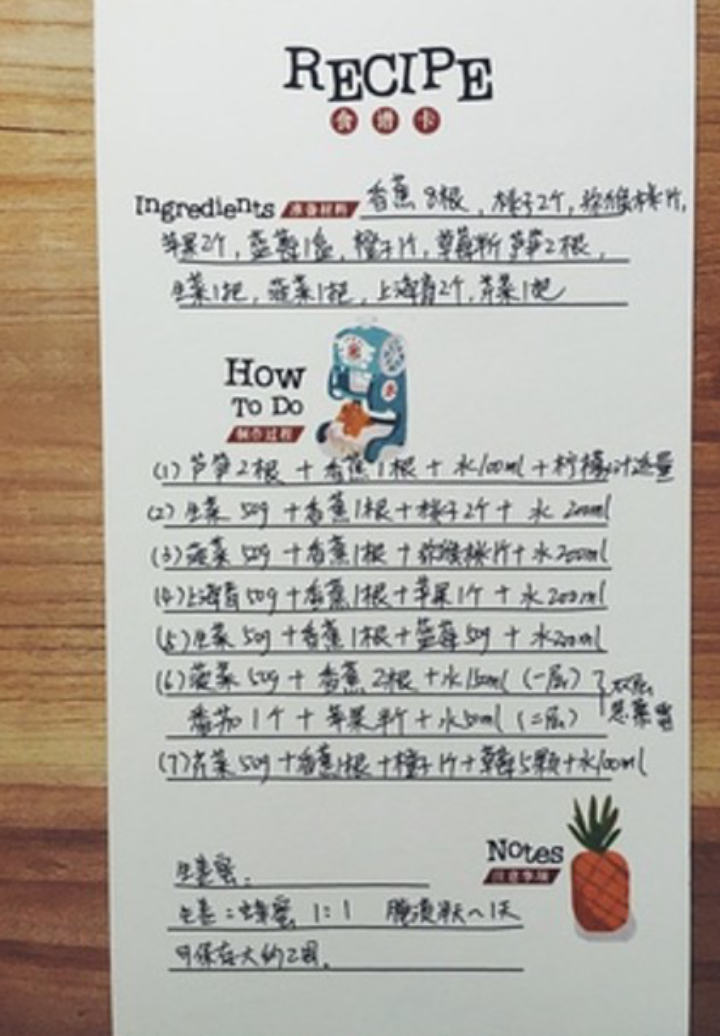 RECIPE
食谱卡
Ingredients 准备材料 香蕉8根，桃子2个，猕猴桃1个，
苹果2个，蓝莓1盒，橙子1个，草莓 芦笋2根，
生菜1把，菠菜1把，上海青2个，芹菜1把
How
To Do
制作过程
(1) 芦笋2根 + 香蕉1根 + 水100ml + 柠檬汁适量
(2) 生菜 50g + 香蕉1根 + 桃子2个 + 水 200ml
(3) 菠菜 50g + 香蕉1根 + 猕猴桃1个 + 水200ml
(4) 上海青 50g + 香蕉1根 + 苹果1个 + 水 200ml
(5) 生菜 50g + 香蕉1根 + 蓝莓50g + 水200ml
(6) 菠菜 50g + 香蕉2根 + 水150ml (一层) 双层
番茄1个 + 苹果半个 + 水50ml (二层) 思慕雪
(7) 芹菜 50g + 香蕉1根 + 橙子1个 + 草莓5颗 + 水100ml
Notes
注意事项
生姜蜜：
生姜：蜂蜜 1:1 腌渍半天~1天
可保存大约2周。